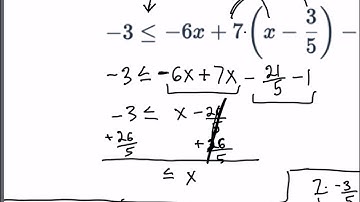 -3 ≤ -6x + 7 · (x - 3/5) -
-3 ≤ -6x + 7x - 21/5 - 1
-3 ≤ x - 26/5
+26/5 +26/5
≤ x
7 · -3/5